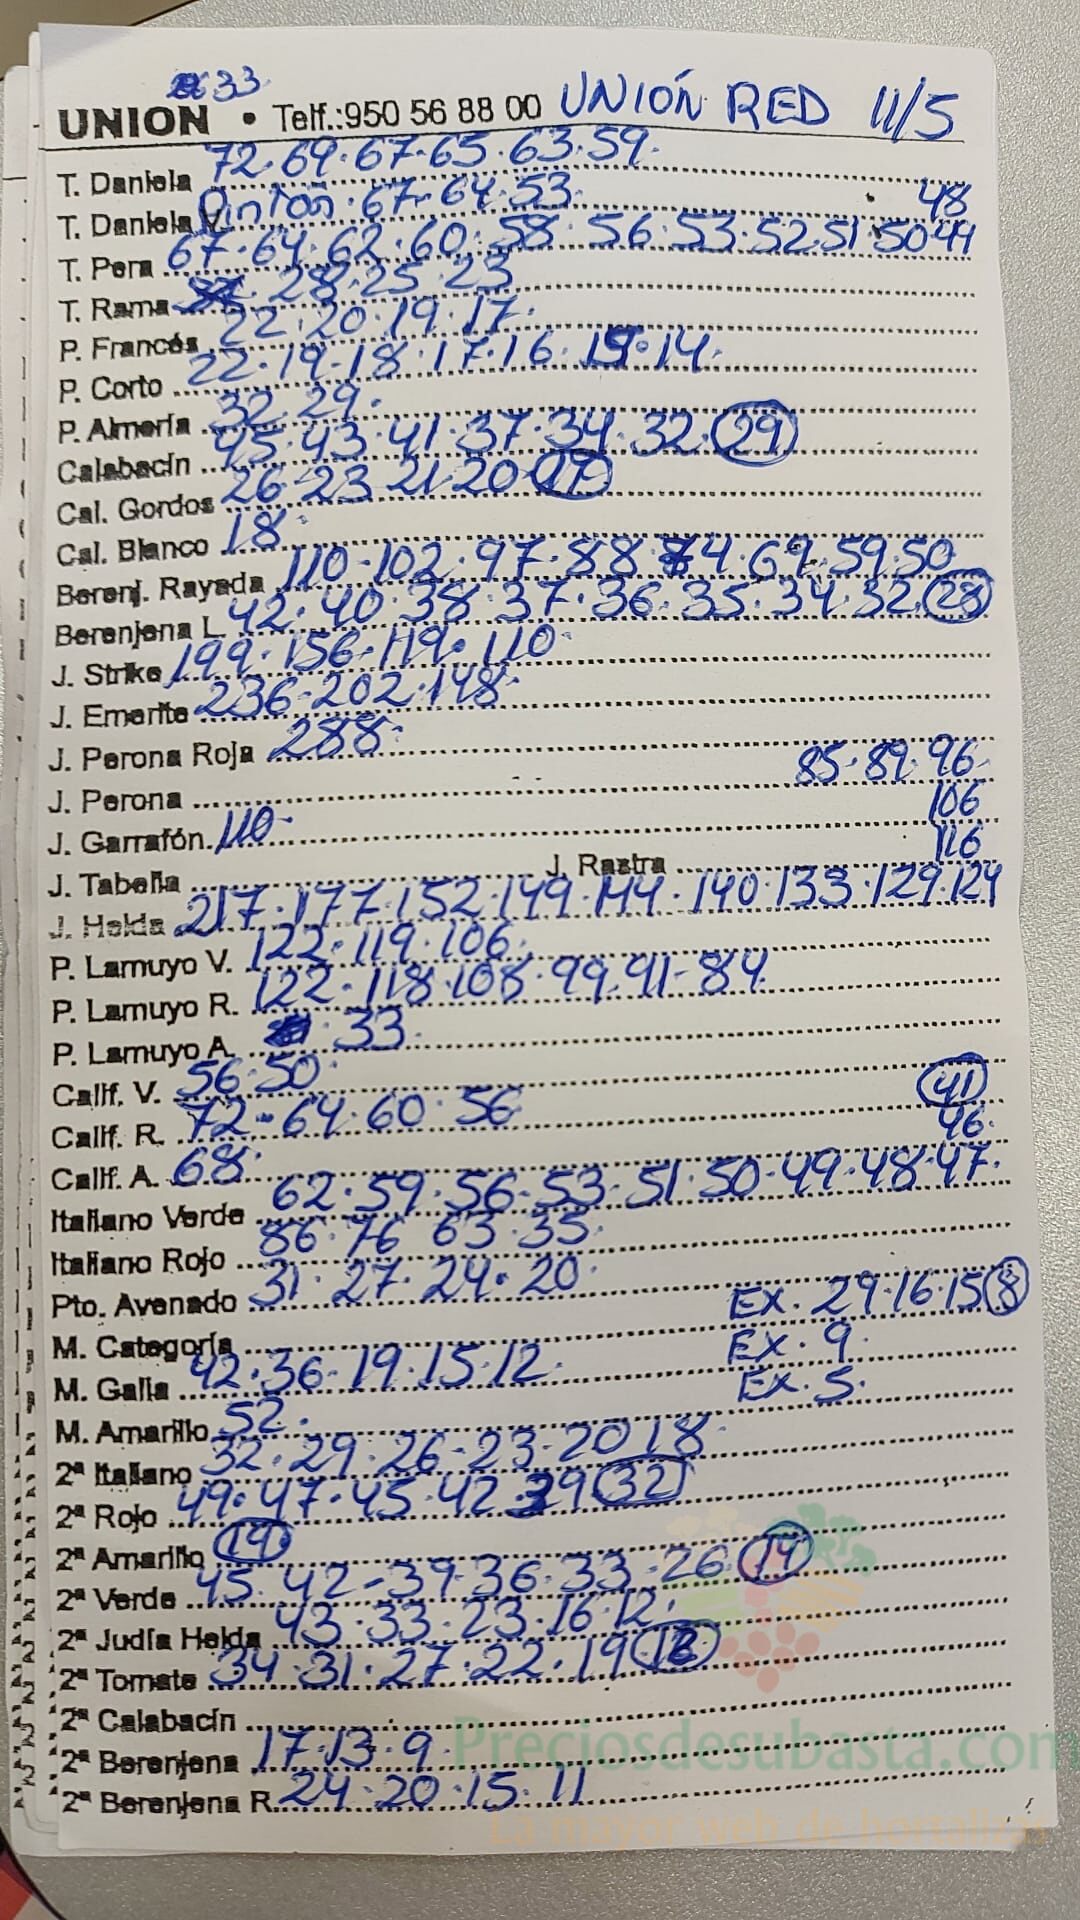 33
UNION • Telf.:950 56 88 00 UNIÓN RED 11/5
T. Daniela 72·69·67·65·63·59·
T. Daniela V. Pintón·67·64·53· 48
T. Pera 67·64·62·60·58·56·53·52·51·50·44
T. Rama 28·25·23
P. Francés 22·20·19·17·
P. Corto 22·19·18·17·16·15·14·
P. Almería 32·29·
Calabacín 45·43·41·37·34·32·29
Cal. Gordos 26·23·21·20·17
Cal. Blanco 18·
Berenj. Rayada 110·102·97·88·74·69·59·50
Berenjena L. 42·40·38·37·36·35·34·32·28
J. Strike 199·156·119·110·
J. Emerite 236·202·148·
J. Perona Roja 288·
J. Perona 85·89·96·
J. Garrafón 110· 106
J. Tabella J. Rastra 116
J. Helda 217·177·152·149·144·140·133·129·124
P. Lamuyo V. 122·119·106·
P. Lamuyo R. 122·118·108·99·91·84·
P. Lamuyo A. 33·
Calif. V. 56·50·
Calif. R. 72·64·60·56 41
Calif. A. 68· 46·
Italiano Verde 62·59·56·53·51·50·49·48·47·
Italiano Rojo 86·76 63·35·
Pto. Avenado 31·27·24·20·
M. Categoría EX·29·16·15 8
M. Galia 42·36·19·15·12· EX·9·
M. Amarillo 52· EX·5·
2ª Italiano 32·29·26·23·20 18·
2ª Rojo 49·47·45·42 39 32
2ª Amarillo 14
2ª Verde 45·42·39·36·33·26 14
2ª Judía Helda 43·33·23·16·12·
2ª Tomate 34·31·27·22·19
2ª Calabacín
2ª Berenjena 17·13·9·
2ª Berenjena R. 24·20·15·11
Preciosdesubasta.com
La mayor web de hortalizas